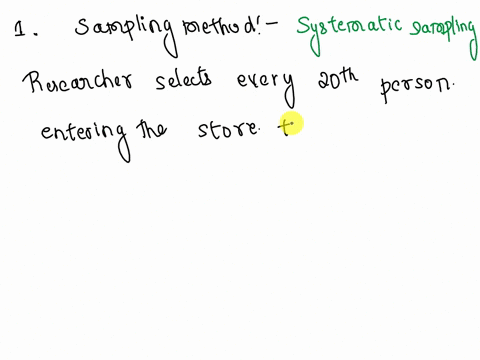 1. Sampling method:- Systematic sampling
Researcher selects every 20th person.
entering the store. t